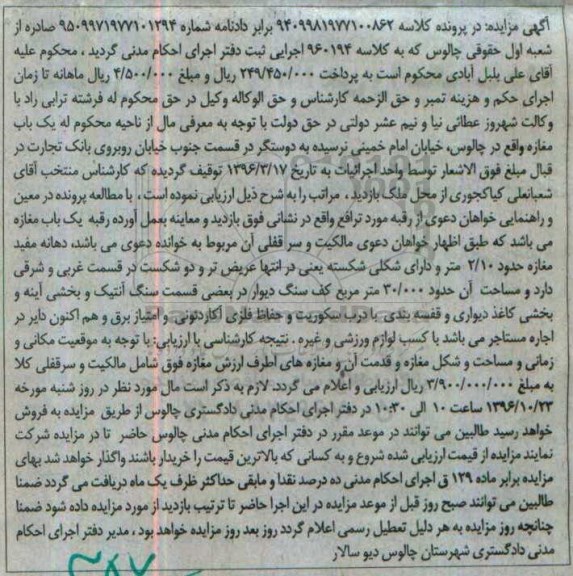 آگهی مزایده: در پرونده کلاسه ۹۴۰۹۹۸۱۹۷۷۱۰۰۸۶۲ برابر دادنامه شماره ۹۵۰۹۹۷۱۹۷۷۱۰۱۲۹۴ صادره از
شعبه اول حقوقی چالوس که به کلاسه ۹۶۰۱۹۴ اجرایی ثبت دفتر اجرای احکام مدنی گردید ، محکوم علیه
آقای علی بلبل آبادی محکوم است به پرداخت ۲۴۹/۴۵۰/۰۰۰ ریال و مبلغ ۴/۵۰۰/۰۰۰ ریال ماهانه تا زمان
اجرای حکم و هزینه تمبر و حق الزحمه کارشناس و حق الوکاله وکیل در حق محکوم له فرشته ترابی راد با
وکالت شهروز عطائی نیا و نیم عشر دولتی در حق دولت با توجه به معرفی مال از ناحیه محکوم له یک باب
مغازه واقع در چالوس، خیابان امام خمینی نرسیده به دوستگر در قسمت جنوب خیابان روبروی بانک تجارت در
قبال مبلغ فوق الاشعار توسط واحد اجرائیات به تاریخ ۱۳۹۶/۳/۱۷ توقیف گردیده که کارشناس منتخب آقای
شعبانعلی کیاکجوری از محل ملک بازدید ، مراتب را به شرح ذیل ارزیابی نموده است ، با مطالعه پرونده در معین
و راهنمایی خواهان دعوی از رقبه مورد ترافع واقع در نشانی فوق بازدید و معاینه بعمل آورده رقبه یک باب مغازه
می باشد که طبق اظهار خواهان دعوی مالکیت و سر قفلی آن مربوط به خوانده دعوی می باشد، دهانه مفید
مغازه حدود ۲/۱۰ متر و دارای شکلی شکسته یعنی در انتها عریض تر و دو شکست در قسمت غربی و شرقی
دارد و مساحت آن حدود ۳۰/۰۰۰ متر مربع کف سنگ دیوار در بعضی قسمت سنگ آنتیک و بخشی آینه و
بخشی کاغذ دیواری و قفسه بندی با درب سکوریت و حفاظ فلزی آکاردئونی و امتیاز برق و هم اکنون دایر در
اجاره مستاجر می باشد با کسب لوازم ورزشی و غیره . نتیجه کارشناسی با ارزیابی: با توجه به موقعیت مکانی و
زمانی و مساحت و شکل مغازه و قدمت آن و مغازه های اطرف ارزش مغازه فوق شامل مالکیت و سرقفلی کلا
به مبلغ ۳/۹۰۰/۰۰۰/۰۰۰ ریال ارزیابی و اعلام می گردد. لازم به ذکر است مال مورد نظر در روز شنبه مورخه
۱۳۹۶/۱۰/۲۳ ساعت ۱۰ الی ۱۰:۳۰ در دفتر اجرای احکام مدنی دادگستری چالوس از طریق مزایده به فروش
خواهد رسید طالبین می توانند در موعد مقرر در دفتر اجرای احکام مدنی چالوس حاضر تا در مزایده شرکت
نمایند مزایده از قیمت ارزیابی شده شروع و به کسانی که بالاترین قیمت را خریدار باشند واگذار خواهد شد بهای
مزایده برابر ماده ۱۲۹ ق اجرای احکام مدنی ده درصد نقدا و مابقی حداکثر ظرف یک ماه دریافت می گردد ضمنا
طالبین می توانند صبح روز قبل از موعد مزایده در این اجرا حاضر تا ترتیب بازدید از مورد مزایده داده شود ضمنا
چنانچه روز مزایده به هر دلیل تعطیل رسمی اعلام گردد روز بعد روز مزایده خواهد بود ، مدیر دفتر اجرای احکام
مدنی دادگستری شهرستان چالوس دیو سالار